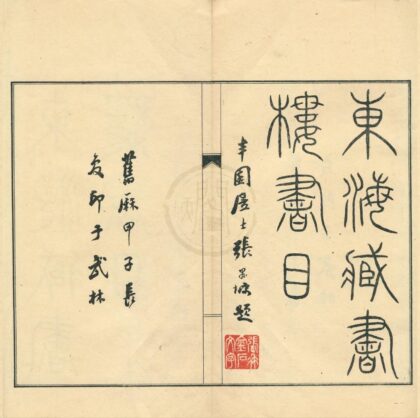 東海藏書
樓書目
園居士張題
舊厤甲子長
夏印于武林